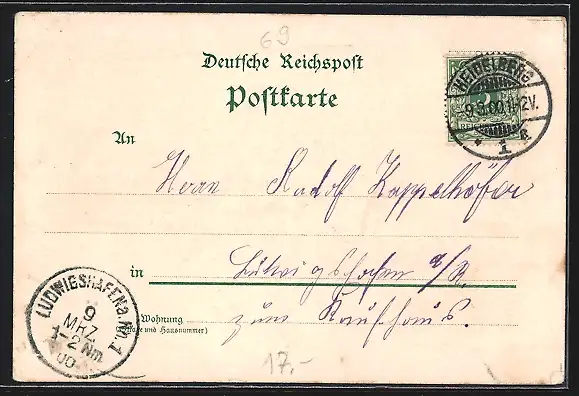 69
Deutsche Reichspost
Postkarte
HEIDELBERG
9.3.00 11-12V.
* 1 B.
An
Herrn Rudolf Kappelhöfer
in Ludwigshafen a/R.
Wohnung
(Straße und Hausnummer)
zum Kaufhaus.
LUDWIGSHAFEN a. Rh. 1
9
MRZ.
1-2 Nm
00
17,-